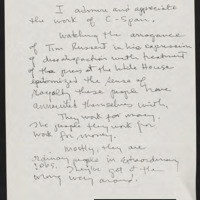 I admire and appreciate
the work of C-Span.
Watching the arrogance
of Tim Russert in his expression
of dissatisfaction with treatment
of the press at the White House
epitomizes the sense of
royalty these people have
annointed themselves with.
They work for money.
The people they work for
work for money.
Mostly, they are
ordinary people in extraordinary
jobs. They get
wrong very